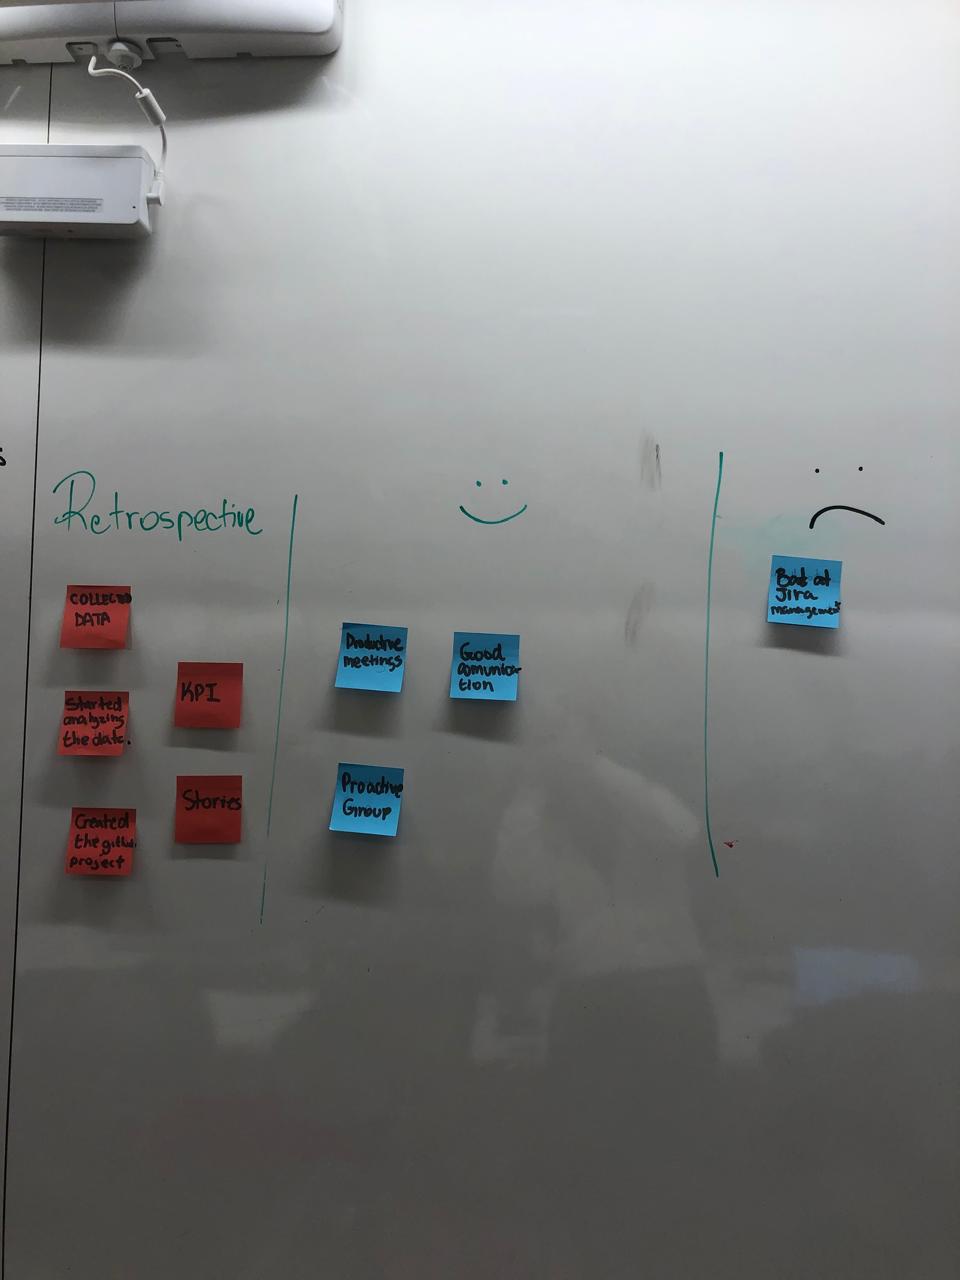 Retrospective
COLLECTED
DATA
Started
analyzing
the data.
Created
the github
project
KPI
Stories
Productive
meetings
Good
comunica-
tion
Proactive
Group
Bad at
Jira
management